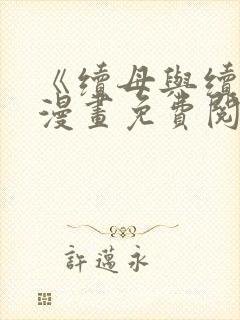 《續母與續
漫畫免費閱
許邁永